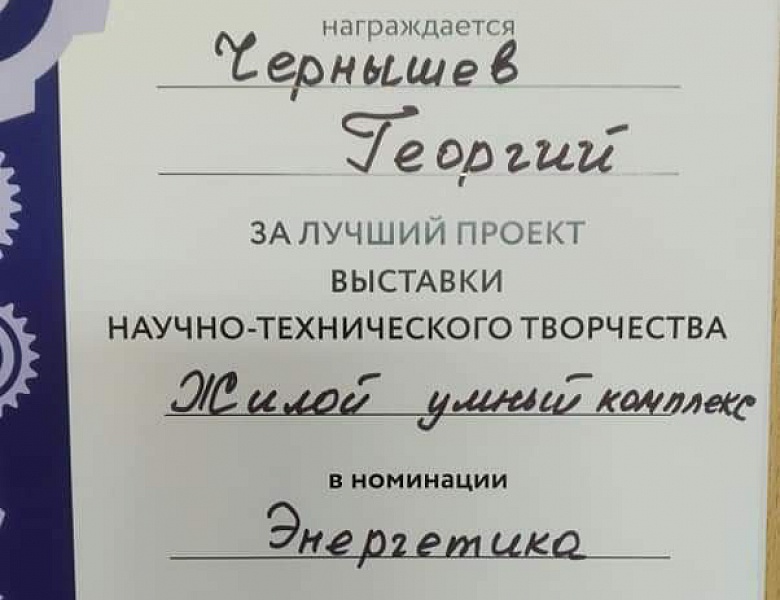 награждается
Чернышев
Георгий
ЗА ЛУЧШИЙ ПРОЕКТ
ВЫСТАВКИ
НАУЧНО-ТЕХНИЧЕСКОГО ТВОРЧЕСТВА
Жилой умный комплекс
в номинации
Энергетика